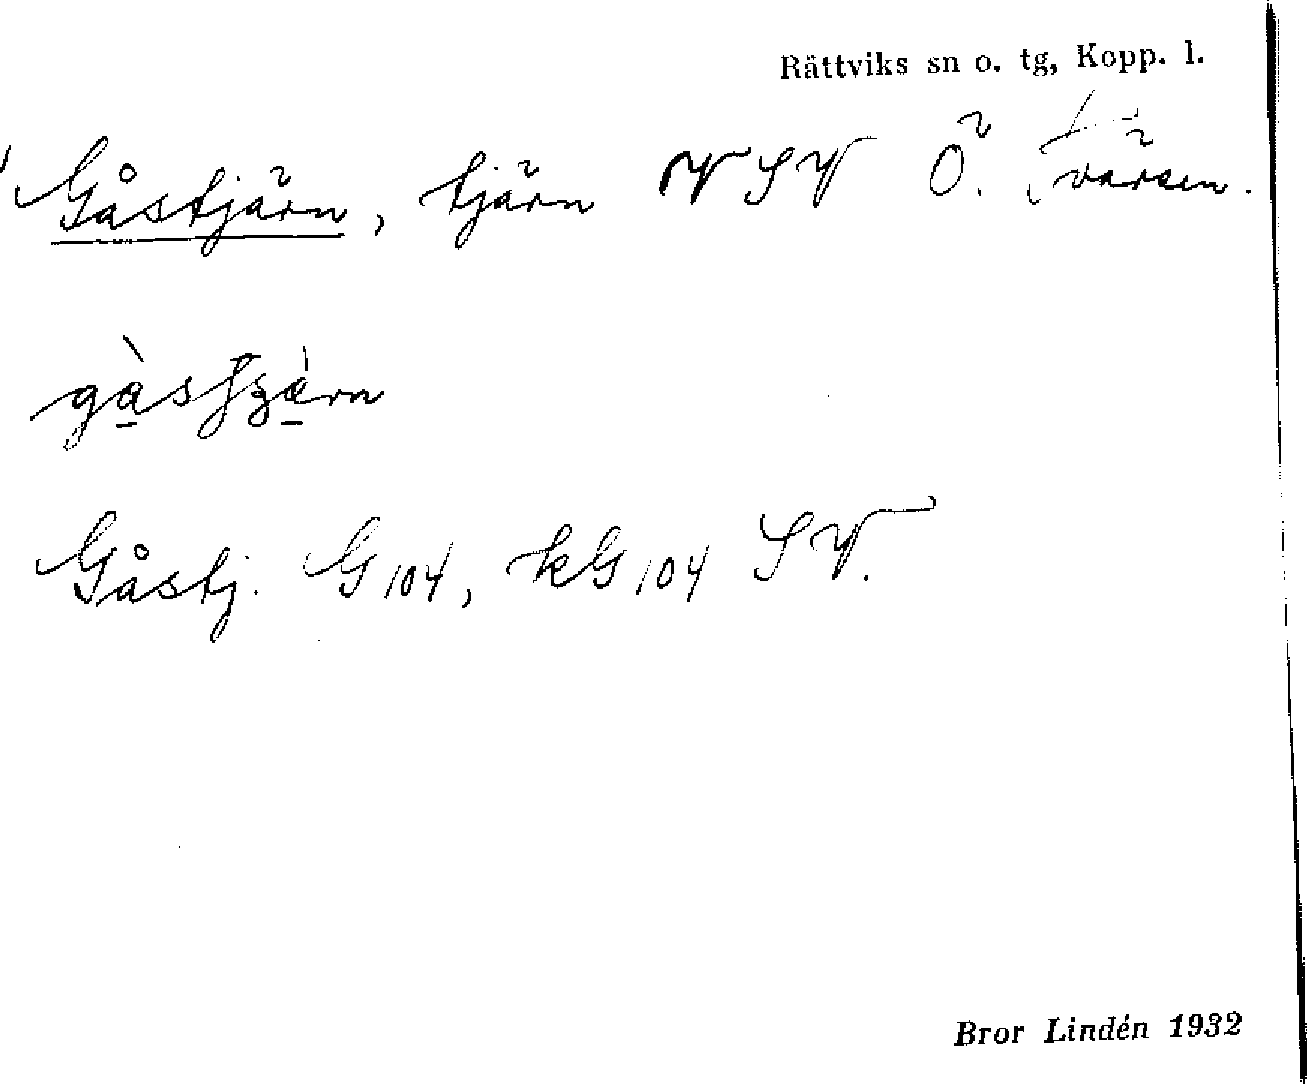 Rättviks sn o. tg, Kopp. l.
Gåstjärn, tjärn VSV Ö. Tvärsen.
Gåstj. G 104, kG 104 SV.
Bror Lindén 1932